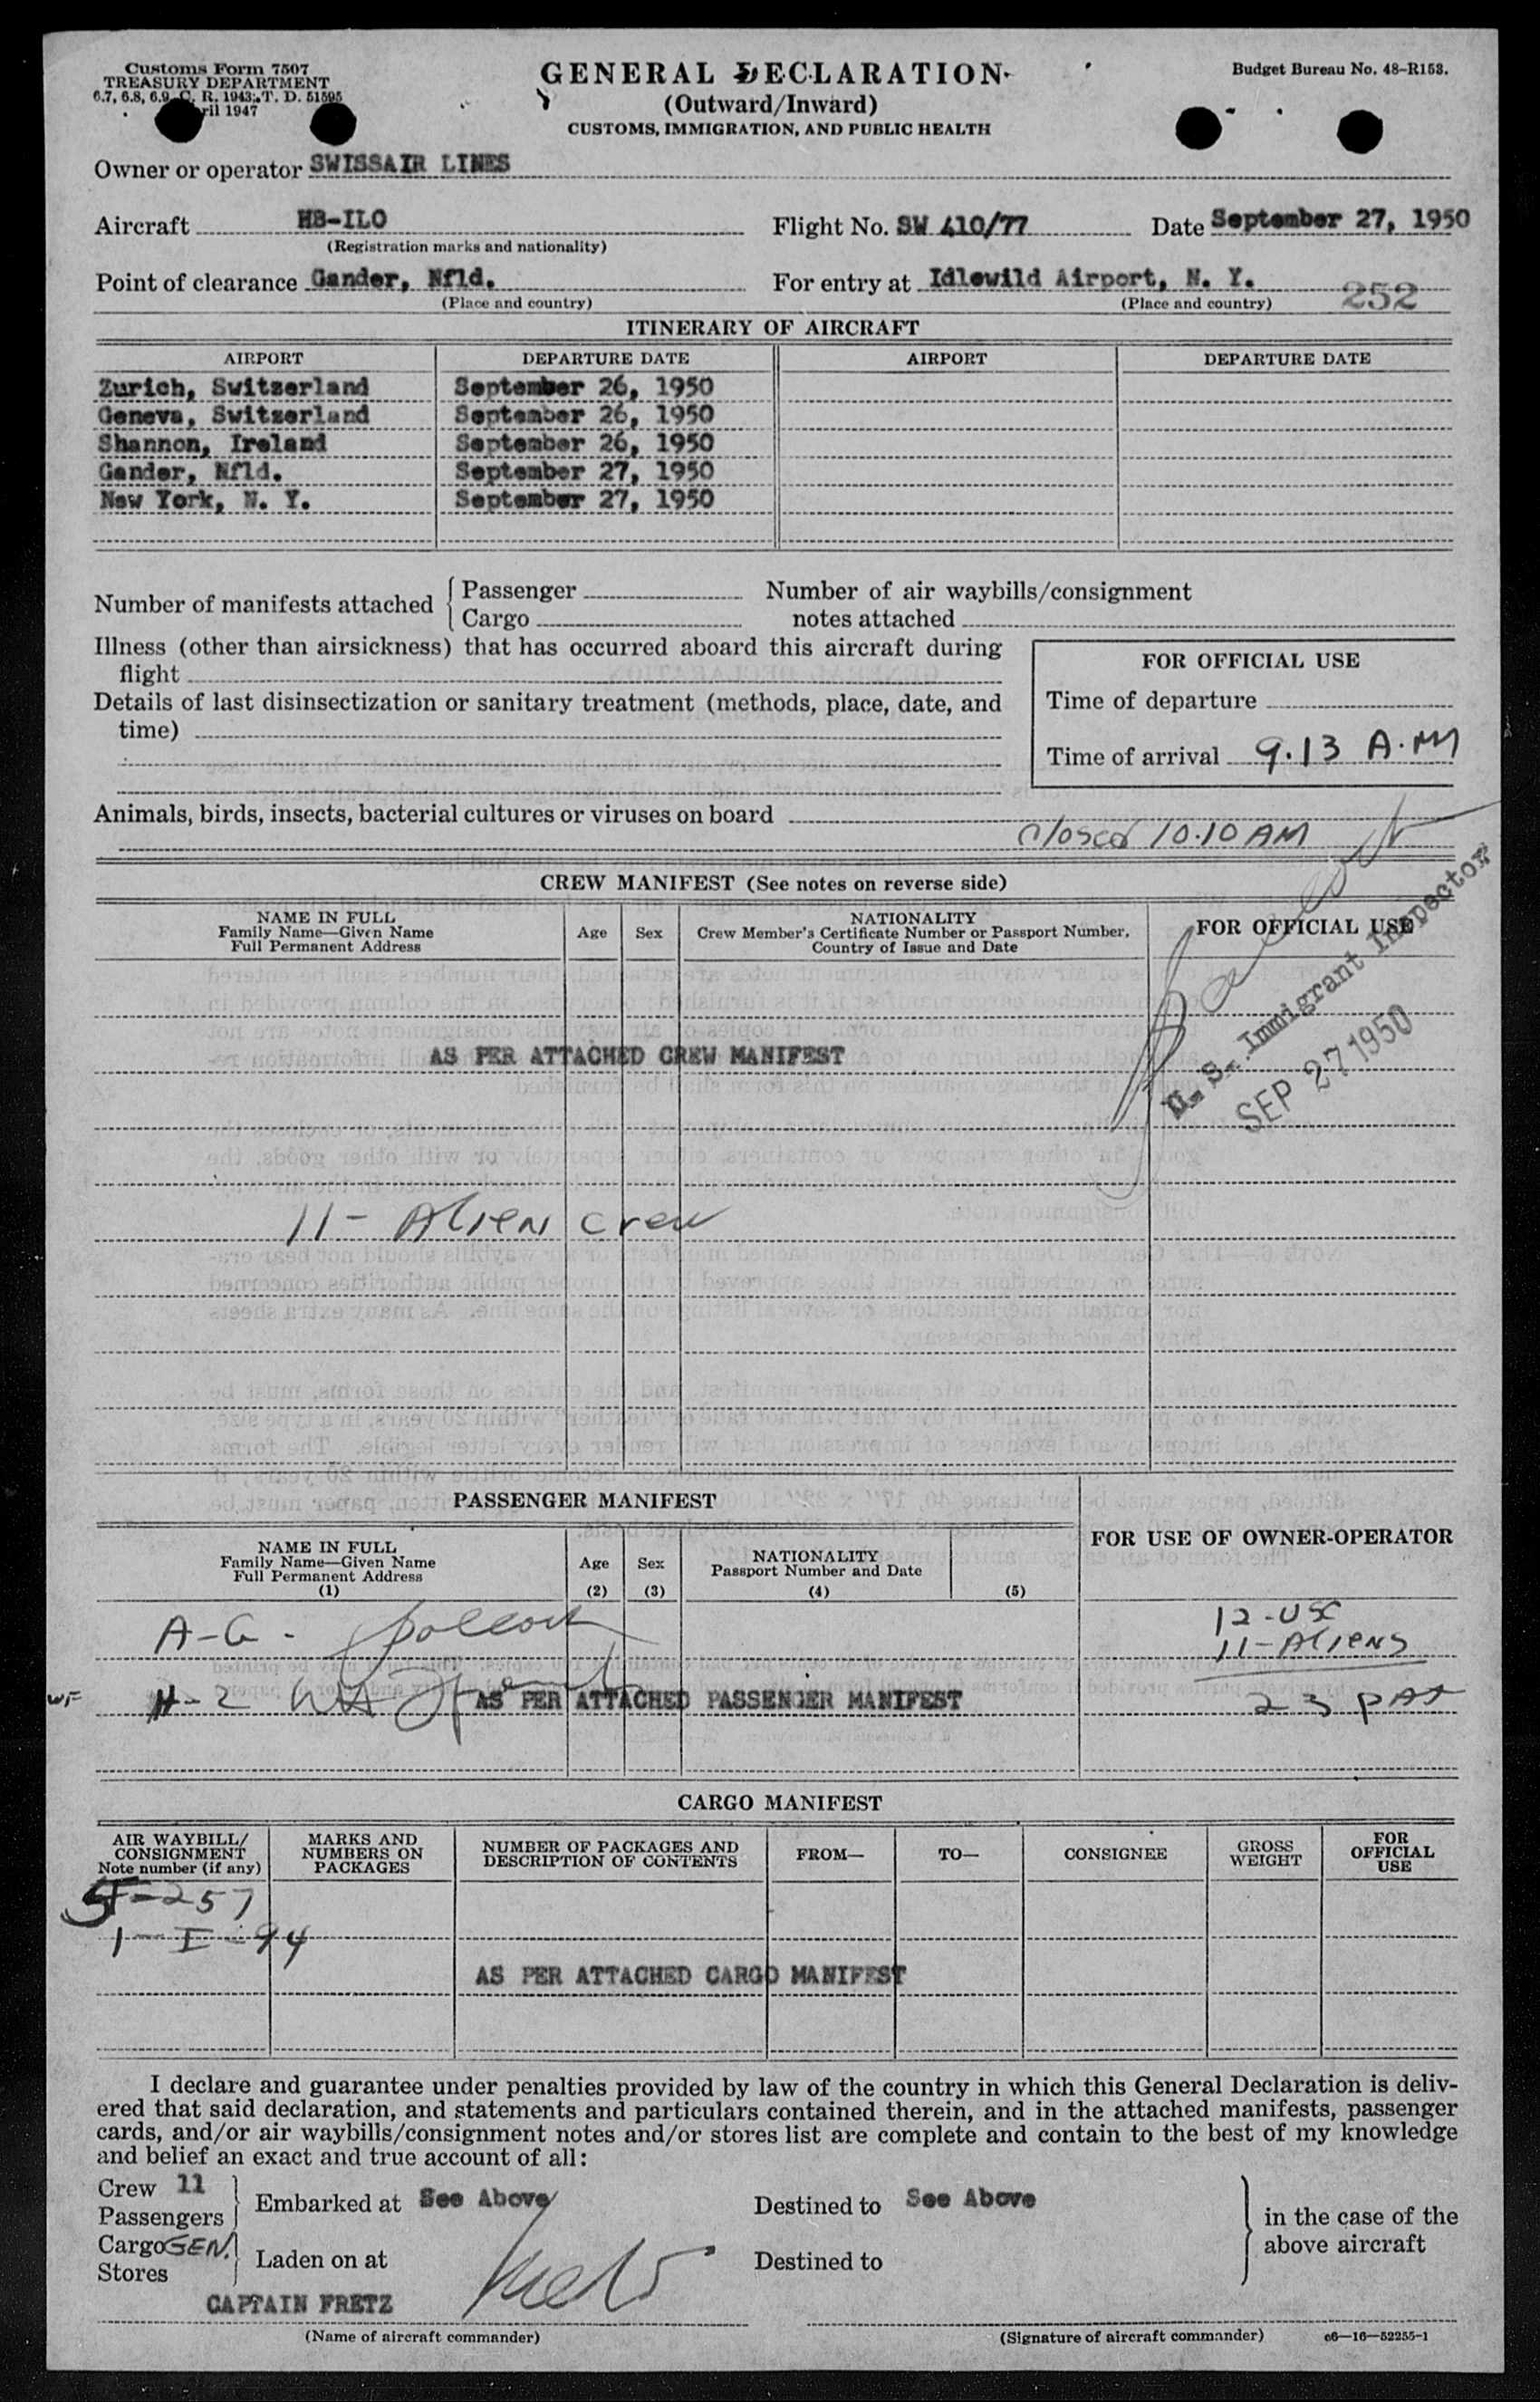 Customs Form 7507
TREASURY DEPARTMENT
6.7, 6.8, 6.9, C. R. 1943; T. D. 51595
ril 1947
GENERAL DECLARATION
(Outward/Inward)
CUSTOMS, IMMIGRATION, AND PUBLIC HEALTH
Budget Bureau No. 48-R153.
Owner or operator SWISSAIR LINES
Aircraft HB-ILO
(Registration marks and nationality)
Flight No. SW 410/77 Date September 27, 1950
Point of clearance Gander, Nfld.
(Place and country)
For entry at Idlewild Airport, N. Y.
(Place and country)
252
ITINERARY OF AIRCRAFT
AIRPORT DEPARTURE DATE AIRPORT DEPARTURE DATE
Zurich, Switzerland September 26, 1950
Geneva, Switzerland September 26, 1950
Shannon, Ireland September 26, 1950
Gander, Nfld. September 27, 1950
New York, N. Y. September 27, 1950
Number of manifests attached { Passenger
Cargo
Number of air waybills/consignment
notes attached
Illness (other than airsickness) that has occurred aboard this aircraft during
flight
Details of last disinsectization or sanitary treatment (methods, place, date, and
time)
FOR OFFICIAL USE
Time of departure
Time of arrival 9.13 A.M
Animals, birds, insects, bacterial cultures or viruses on board
closed 10.10 AM
CREW MANIFEST (See notes on reverse side)
NAME IN FULL
Family Name—Given Name
Full Permanent Address
Age
Sex
NATIONALITY
Crew Member's Certificate Number or Passport Number,
Country of Issue and Date
FOR OFFICIAL USE
U. S. Immigrant Inspector
SEP 27 1950
AS PER ATTACHED CREW MANIFEST
11- Alien crew
PASSENGER MANIFEST
NAME IN FULL
Family Name—Given Name
Full Permanent Address
(1)
Age
(2)
Sex
(3)
NATIONALITY
Passport Number and Date
(4)
(5)
FOR USE OF OWNER-OPERATOR
A-G -
12-USC
11-Aliens
WF
H-2
AS PER ATTACHED PASSENGER MANIFEST
23 pas
CARGO MANIFEST
AIR WAYBILL/
CONSIGNMENT
Note number (if any)
MARKS AND
NUMBERS ON
PACKAGES
NUMBER OF PACKAGES AND
DESCRIPTION OF CONTENTS
FROM—
TO—
CONSIGNEE
GROSS
WEIGHT
FOR
OFFICIAL
USE
5F-257
1-I-94
AS PER ATTACHED CARGO MANIFEST
I declare and guarantee under penalties provided by law of the country in which this General Declaration is deliv-
ered that said declaration, and statements and particulars contained therein, and in the attached manifests, passenger
cards, and/or air waybills/consignment notes and/or stores list are complete and contain to the best of my knowledge
and belief an exact and true account of all:
Crew 11
Passengers
Embarked at See Above
Destined to See Above
Cargo GEN.
Stores
Laden on at
Destined to
in the case of the
above aircraft
CAPTAIN FRETZ
(Name of aircraft commander)
(Signature of aircraft commander)
c6—16—52255-1